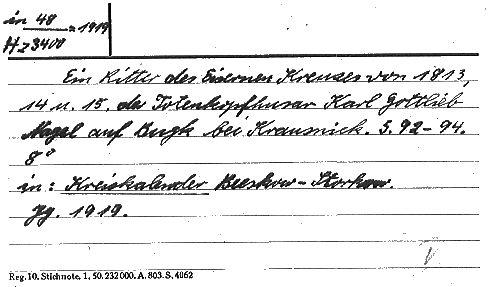 in 48 = 1919
Hz 3400
Ein Ritter des Eisernen Kreuzes von 1813,
14 u. 15. der Totenkopfhusar Karl Gottlieb
Nagel auf Bugk bei Krausnick. S. 92-94.
8°
in: Kreiskalender Beeskow-Storkow.
Jg. 1919.
Reg. 10. Stichnote. 1, 50. 232 000. A. 803. S. 4062